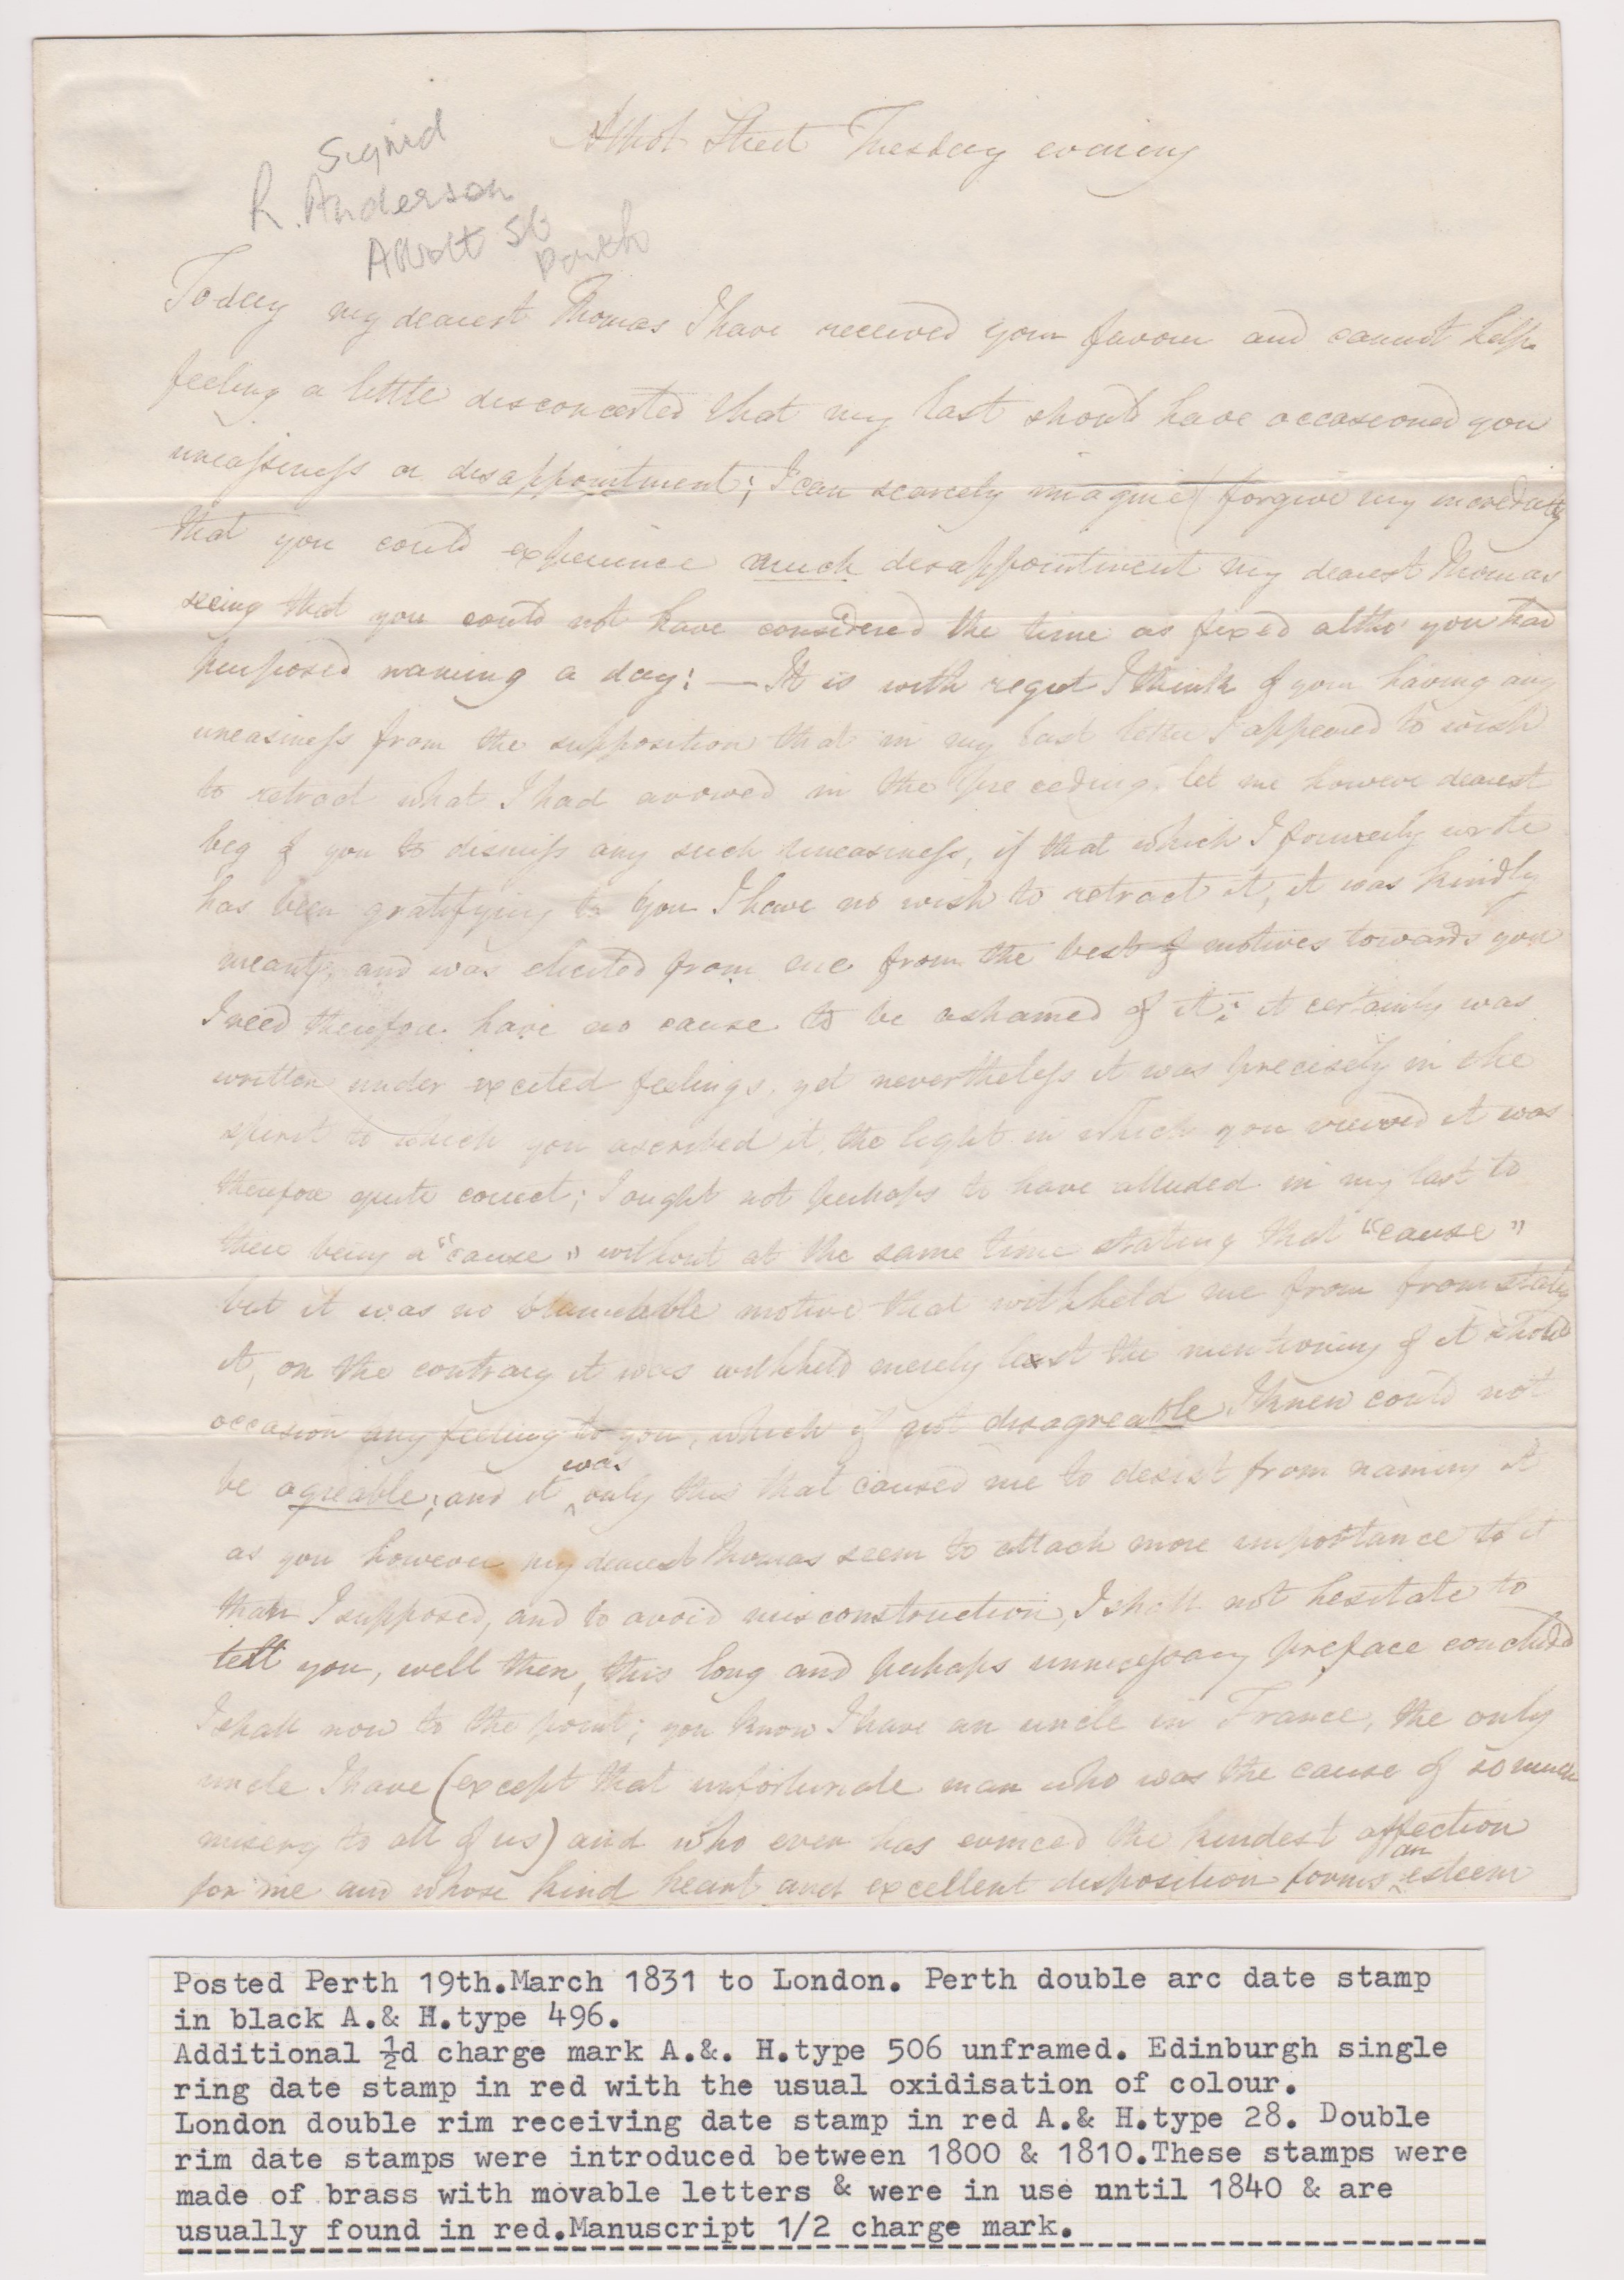 Atholl Street Tuesday evening
Signed
R. Anderson
Atholl St
Perth
Today my dearest Thomas I have received your favour and cannot help
feeling a little disconcerted that my last should have occasioned you
uneasiness or disappointment; I can scarcely imagine (forgive my incredulity
that you could experience much disappointment my dearest Thomas
seeing that you could not have considered the time as fixed altho' you had
purposed naming a day: — It is with regret I think of your having any
uneasiness from the supposition that in my last letter I appeared to wish
to retract what I had avowed in the preceding. let me however dearest
beg of you to dismiss any such uneasiness, if that which I formerly wrote
has been gratifying to you I have no wish to retract it, it was kindly
meant, and was elicited from me from the best of motives towards you
I need therefore have no cause to be ashamed of it; it certainly was
written under excited feelings, yet nevertheless it was precisely in the
spirit to which you ascribed it, the light in which you viewed it was
therefore quite correct; I ought not perhaps to have alluded in my last to
there being a "cause" without at the same time stating that "cause"
but it was no blameable motive that withheld me from from stating
it, on the contrary it was withheld merely lest the mentioning of it should
occasion any feeling to you, which if not disagreeable I knew could not
be agreable; and it was only this that caused me to desist from naming it
as you however my dearest Thomas seem to attach more importance to it
than I supposed, and to avoid misconstruction, I shall not hesitate to
tell you, well then, this long and perhaps unnecessary preface concluded
I shall now to the point; you know I have an uncle in France, the only
uncle I have (except that unfortunate man who was the cause of so much
misery to all of us) and who ever has evinced the kindest affection
for me and whose kind heart and excellent disposition forms an esteem
Posted Perth 19th.March 1831 to London. Perth double arc date stamp
in black A.& H.type 496.
Additional ½d charge mark A.&. H.type 506 unframed. Edinburgh single
ring date stamp in red with the usual oxidisation of colour.
London double rim receiving date stamp in red A.& H.type 28. Double
rim date stamps were introduced between 1800 & 1810.These stamps were
made of brass with movable letters & were in use until 1840 & are
usually found in red.Manuscript 1/2 charge mark.